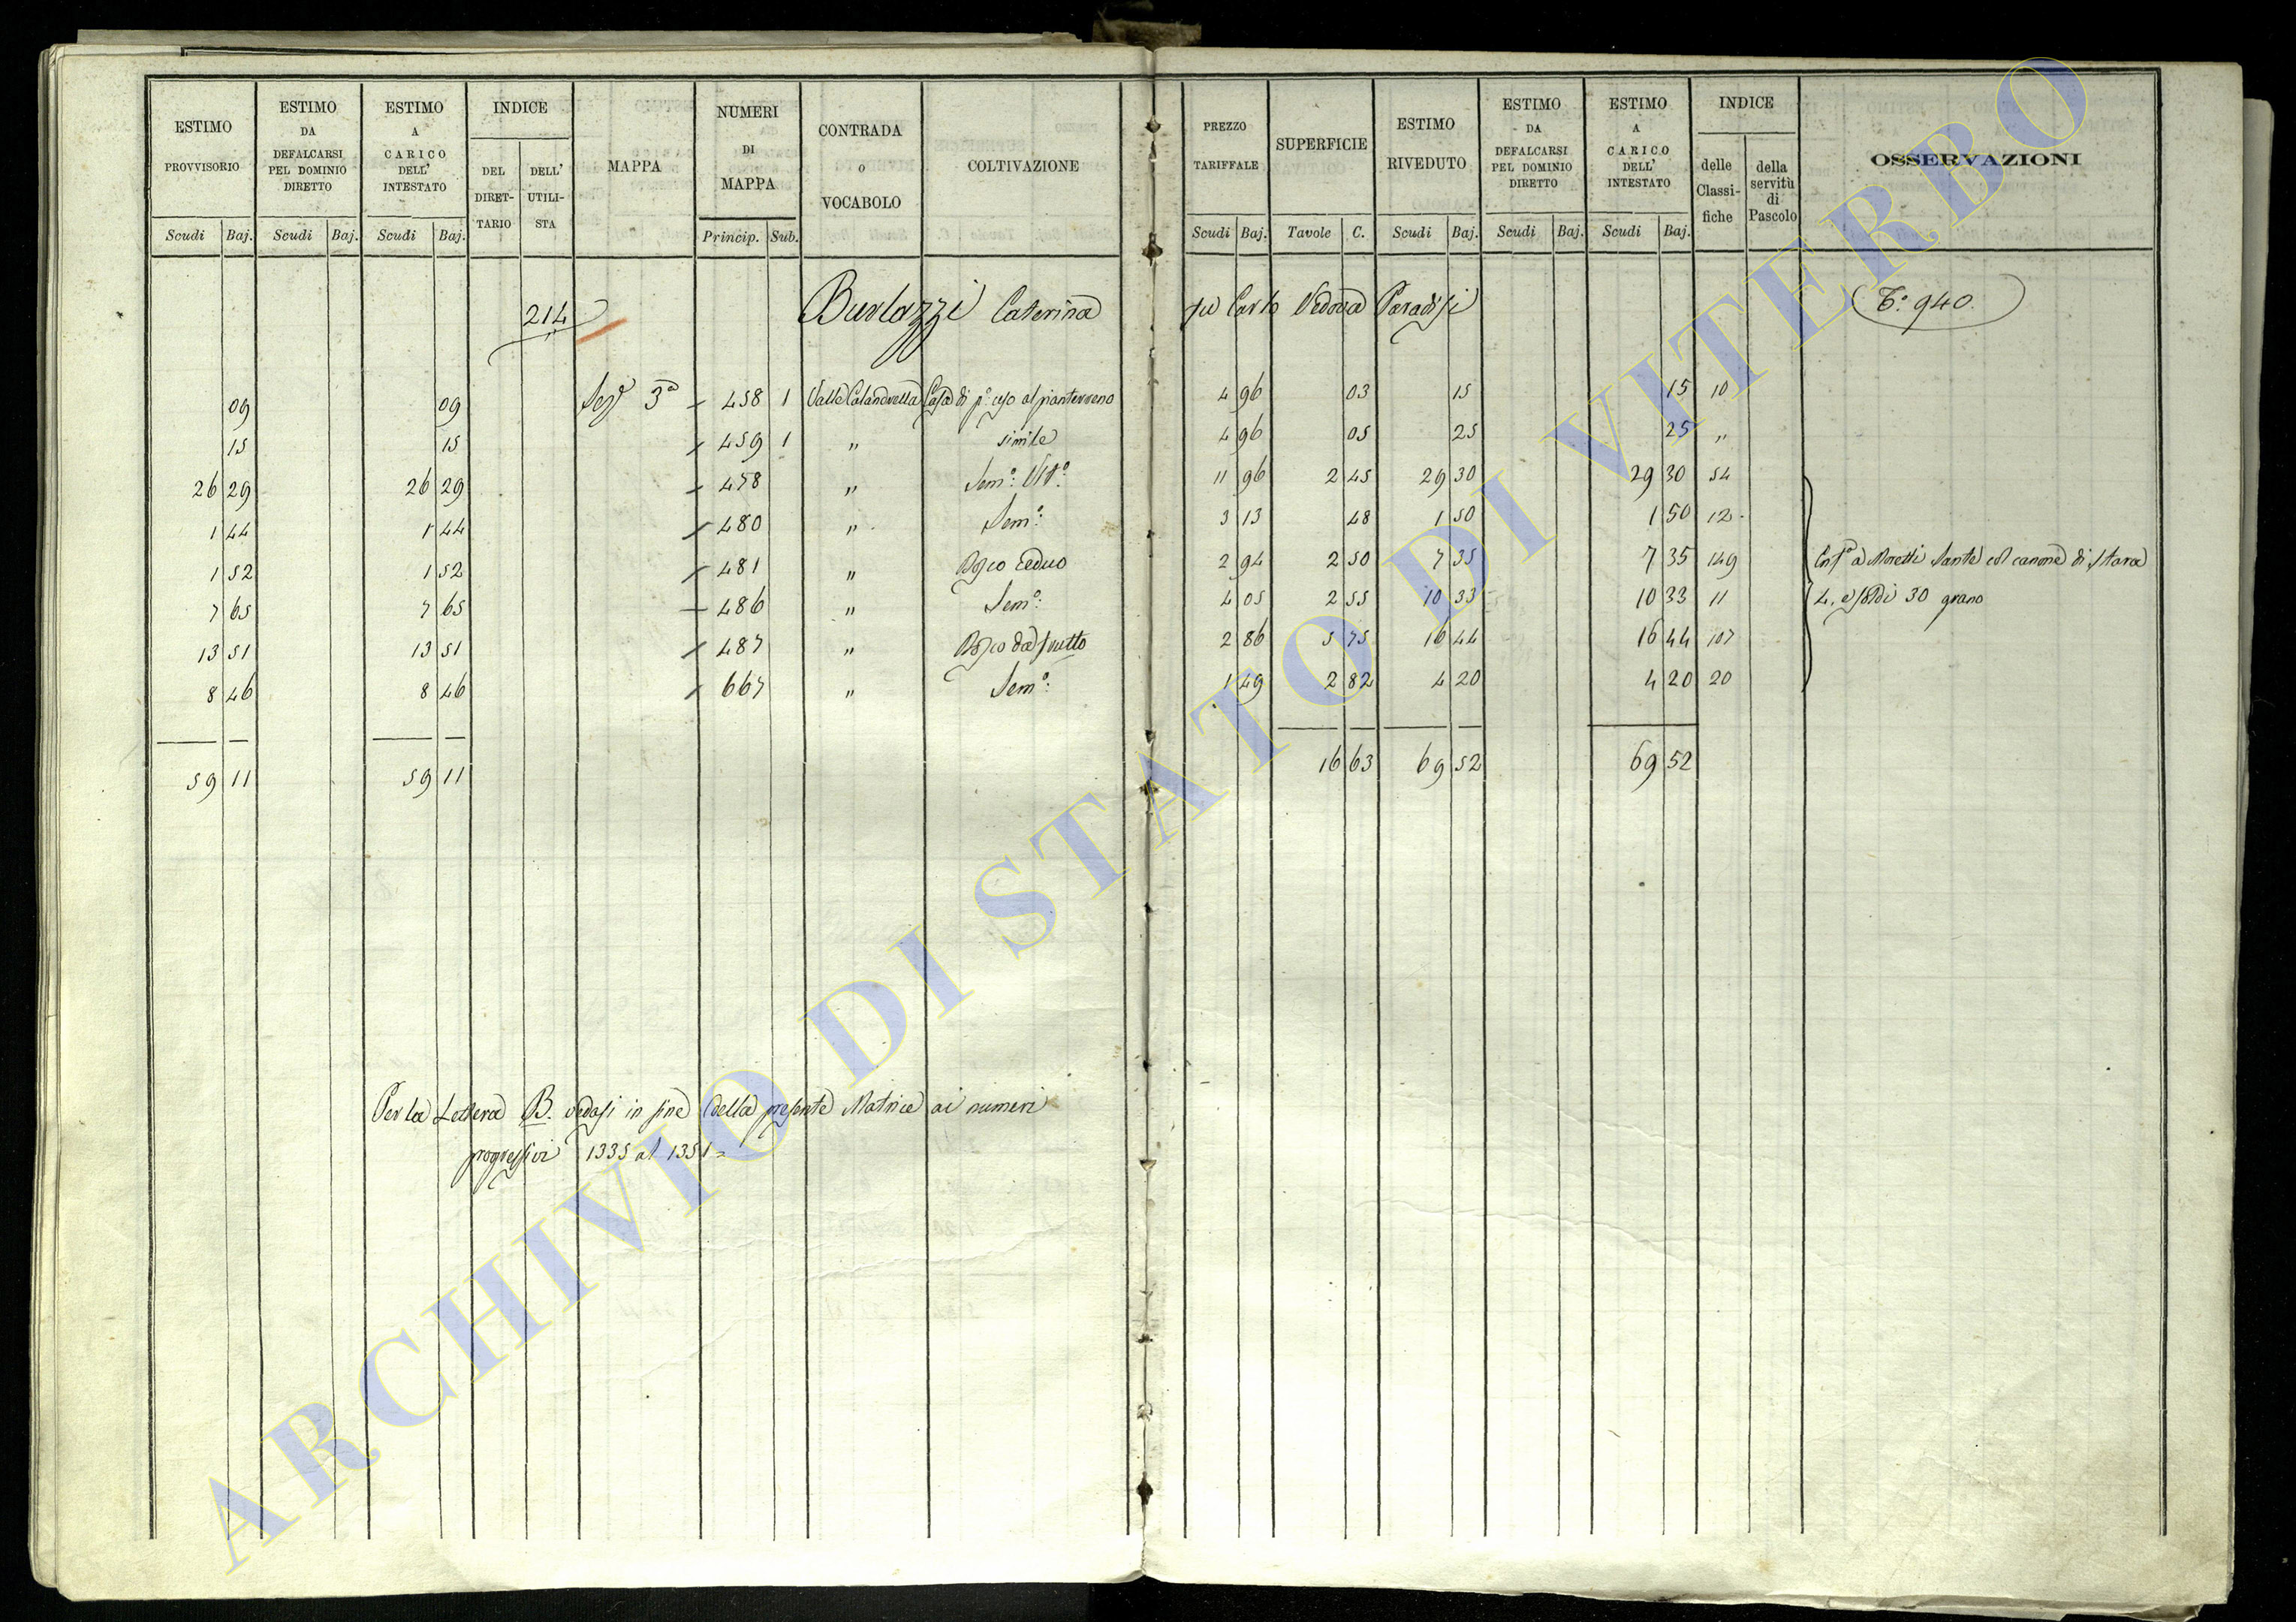 ESTIMO PROVVISORIO | ESTIMO DA DEFALCARSI PEL DOMINIO DIRETTO | ESTIMO A CARICO DELL' INTESTATO | INDICE | MAPPA | NUMERI DI MAPPA | CONTRADA o VOCABOLO | COLTIVAZIONE | PREZZO TARIFFALE | SUPERFICIE | ESTIMO RIVEDUTO | ESTIMO DA DEFALCARSI PEL DOMINIO DIRETTO | ESTIMO A CARICO DELL' INTESTATO | INDICE | OSSERVAZIONI
DEL DIRETTARIO | DELL' UTILISTA | delle Classifiche | della servitù di Pascolo
Scudi | Baj. | Scudi | Baj. | Scudi | Baj. | Princip. | Sub. | Scudi | Baj. | Tavole | C. | Scudi | Baj. | Scudi | Baj. | Scudi | Baj.
214 Burlazzi Caterina fu Carlo Vedova Paradisi T.º 940.
09 | 09 | Sez.e 3a | 458 | 1 | Valle Calandrella | Casa di p.º uso al pianterreno | 4 96 | 03 | 15 | 15 | 10
15 | 15 | 459 | 1 | " | simile | 4 96 | 05 | 25 | 25 | "
26 29 | 26 29 | 478 | " | Sem.º Vit.º | 11 96 | 2 45 | 29 30 | 29 30 | 54
1 44 | 1 44 | 480 | " | Sem.º | 3 13 | 48 | 1 50 | 1 50 | 12
1 52 | 1 52 | 481 | " | Bosco Ceduo | 2 94 | 2 50 | 7 35 | 7 35 | 149 | a Moretti Sante col canone di stara
7 65 | 7 65 | 486 | " | Sem.º | 4 05 | 2 55 | 10 33 | 10 33 | 11 | 4, e soldi 30 grano
13 51 | 13 51 | 487 | " | Bosco da frutto | 2 86 | 5 75 | 16 44 | 16 44 | 107
8 46 | 8 46 | 667 | " | Sem.º | 1 49 | 2 82 | 4 20 | 4 20 | 20
59 11 | 59 11 | 16 63 | 69 52 | 69 52
Per la Lettera B. vedasi in fine della presente Matrice ai numeri
progressivi 1335 al 1351=
ARCHIVIO DI STATO DI VITERBO